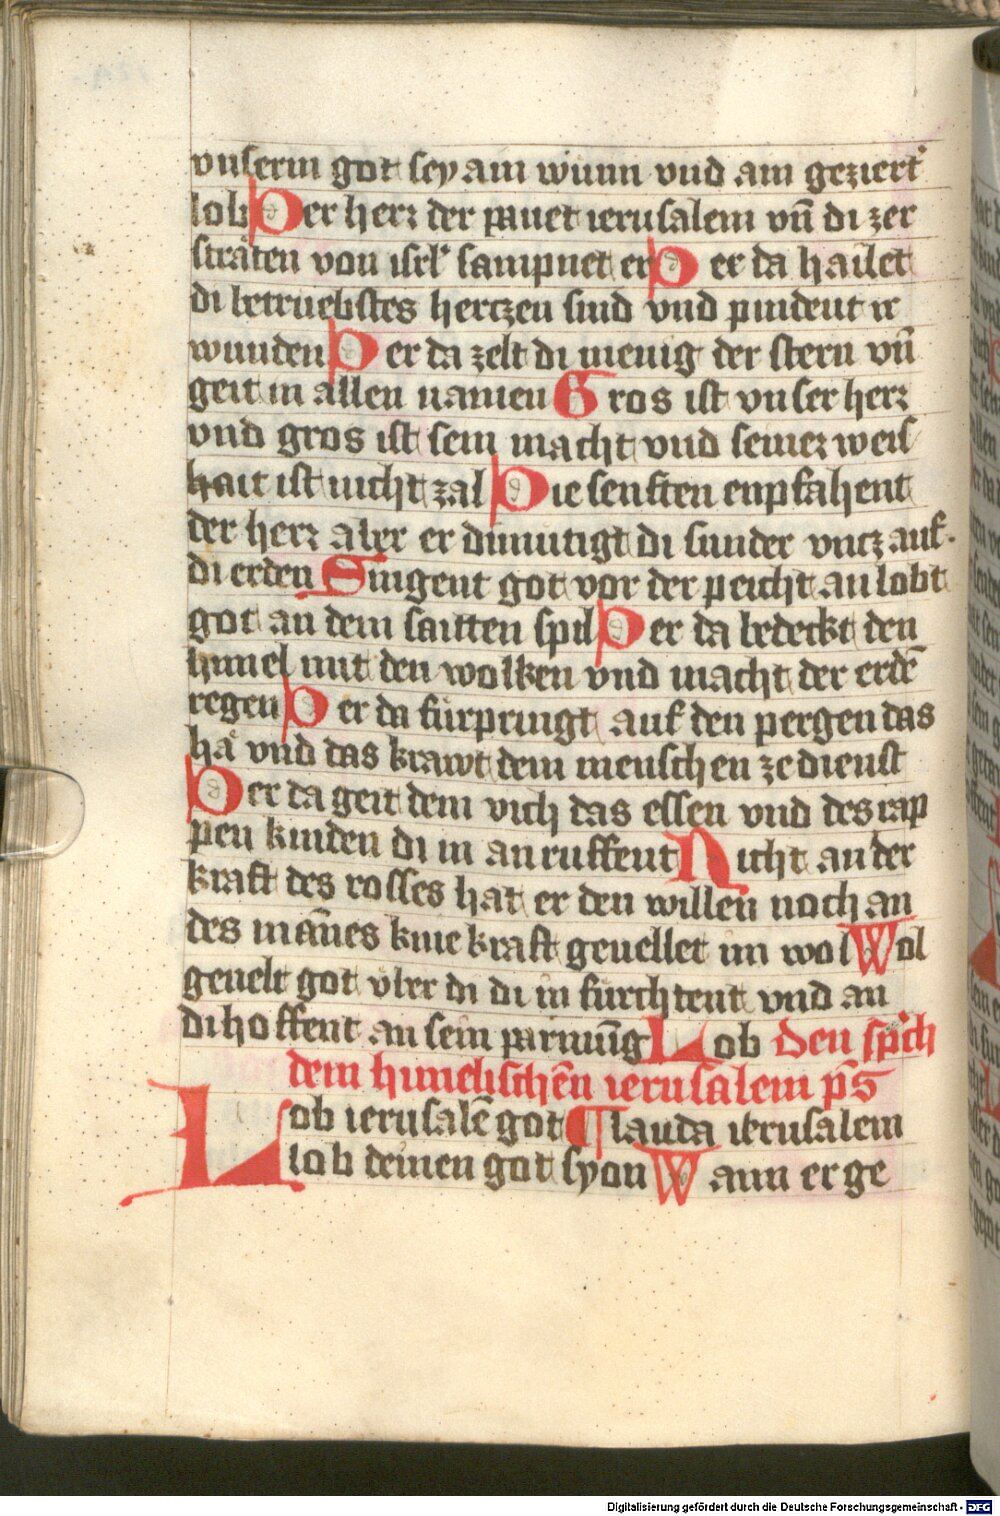 vnserm got sey am wunn vnd am geziert
lob Der herr der pauet ierusalem vn̄ di zer
sträten von isrl' sampnet er Der da hailet
di betruebstes hertzen sind vnd pindent ir
wunden Der da zelt di menig der stern vn̄
geit in allen namen Gros ist vnser herr
vnd gros ist sein macht vnd seiner weis
hait ist nicht zal Die senften enpfahent
der herr aber er dimutigt di sunder vncz auf.
di erden Singent got vor der peicht an lobt
got an dem saitten spil Der da bedeckt den
himel mit den wolken vnd macht der erdē
regen Der da fürpringt auf den pergen das
hä vnd das krawt dem menschen ze dienst
Der da geit dem vich das essen vnd des rap
pen kinden di in an ruffent Nicht an der
kraft des rosses hat er den willen noch an
des man̄es knie kraft geuellet im wol Wol
geuelt got vber di di in fürchtent vnd an
di hoffent an sein parmūg Lob Den sp'ch
dem himelischēn ierusalem ps
Lob ierusalē got ¶ lauda ierusalem
lob deinen got syon Wann er ge
Digitalisierung gefördert durch die Deutsche Forschungsgemeinschaft - DFG